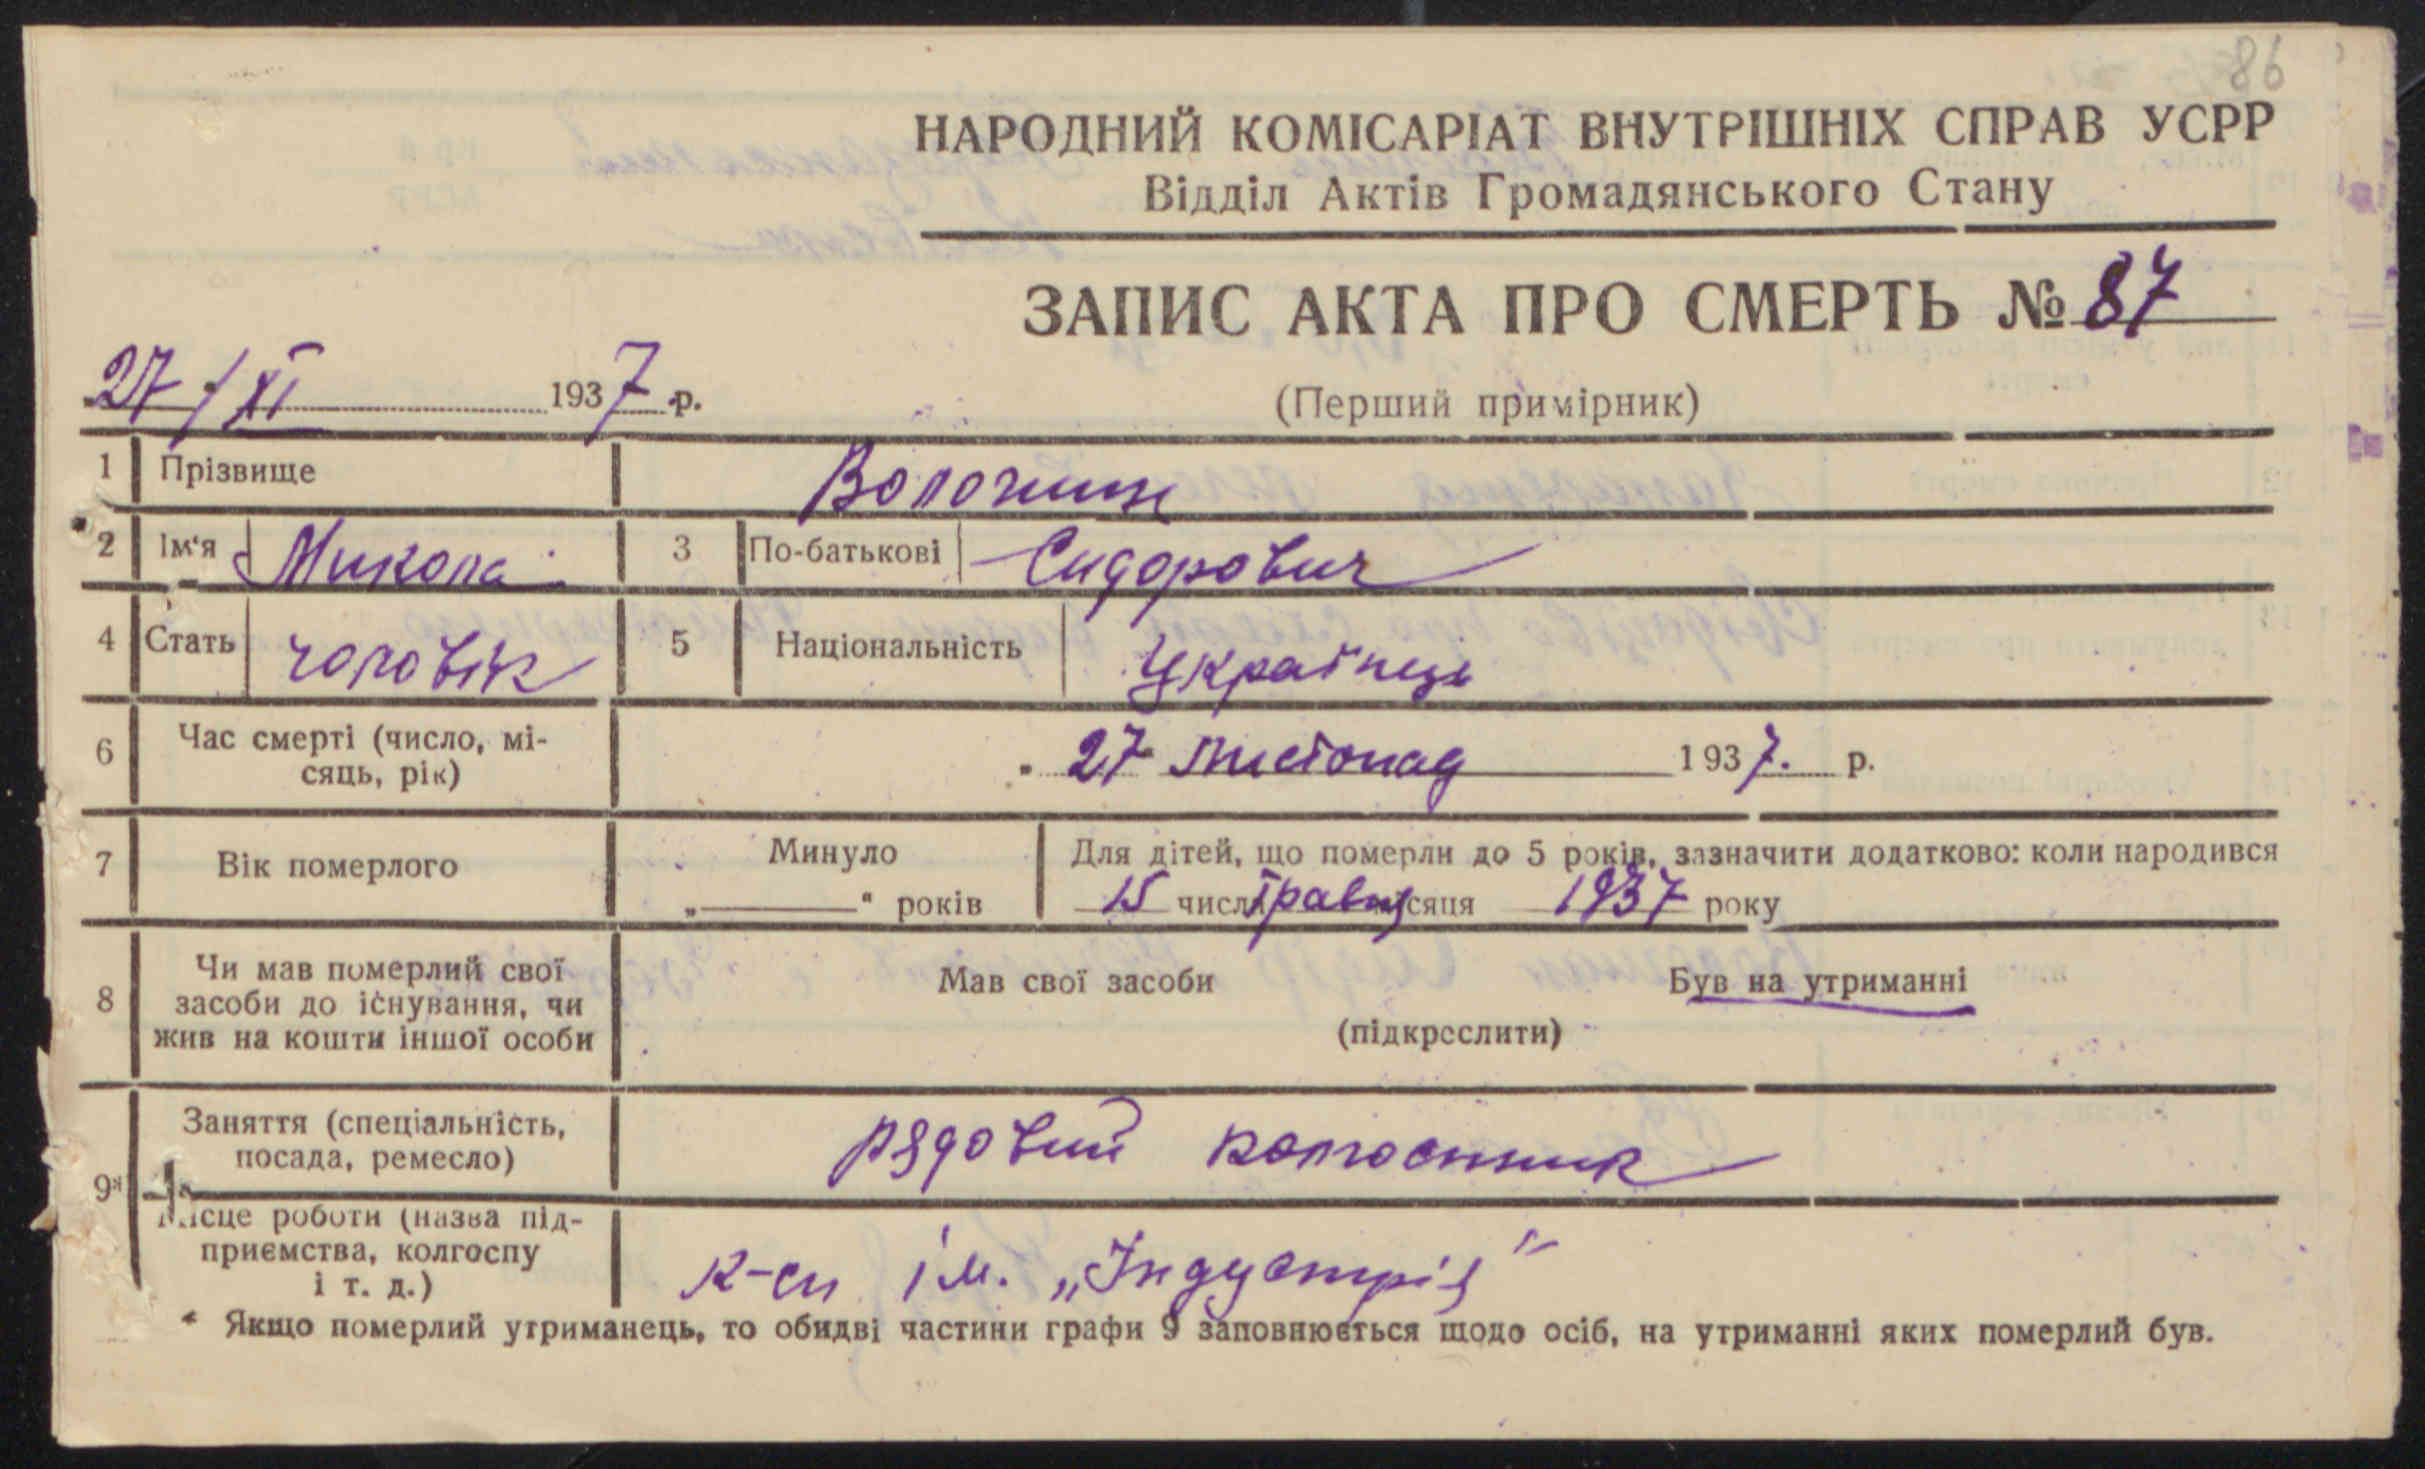 86
НАРОДНИЙ КОМІСАРІАТ ВНУТРІШНІХ СПРАВ УСРР
Відділ Актів Громадянського Стану
ЗАПИС АКТА ПРО СМЕРТЬ № 87
27/XI 1937 р.
(Перший примірник)
1 Прізвище Волочин
2 Ім'я Микола 3 По-батькові Сидорович
4 Стать чоловік 5 Національність Українець
6 Час смерті (число, мі-
сяць, рік)
27 листопад 1937. р.
7 Вік померлого
Минуло
"———" років
Для дітей, що померли до 5 років, зазначити додатково: коли народився
15 числа травня місяця 1937 року
8 Чи мав померлий свої
засоби до існування, чи
жив на кошти іншої особи
Мав свої засоби Був на утриманні
(підкреслити)
9* Заняття (спеціальність,
посада, ремесло)
рядовий колгоспник
Місце роботи (назва під-
приємства, колгоспу
і т. д.)
к-сп ім. „Індустрія"
* Якщо померлий утриманець, то обидві частини графи 9 заповнюються щодо осіб, на утриманні яких померлий був.